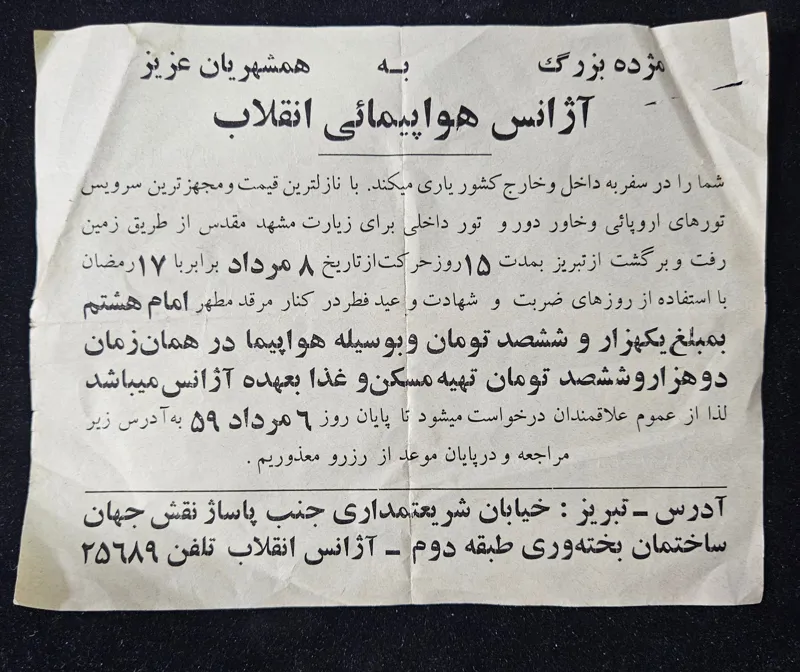 مژده بزرگ به همشهریان عزیز
آژانس هواپیمائی انقلاب
شما را در سفر به داخل و خارج کشور یاری میکند. با نازلترین قیمت و مجهزترین سرویس
تورهای اروپائی و خاور دور و تور داخلی برای زیارت مشهد مقدس از طریق زمین
رفت و برگشت از تبریز بمدت ۱۵ روز حرکت از تاریخ ۸ مرداد برابر با ۱۷ رمضان
با استفاده از روزهای ضربت و شهادت و عید فطر در کنار مرقد مطهر امام هشتم
بمبلغ یکهزار و ششصد تومان و بوسیله هواپیما در همان زمان
دو هزار و ششصد تومان تهیه مسکن و غذا بعهده آژانس میباشد
لذا از عموم علاقمندان درخواست میشود تا پایان روز ۶ مرداد ۵۹ به آدرس زیر
مراجعه و در پایان موعد از رزرو معذوریم .
آدرس ـ تبریز : خیابان شریعتمداری جنب پاساژ نقش جهان
ساختمان بخته‌وری طبقه دوم ـ آژانس انقلاب تلفن ۲۵۶۸۹